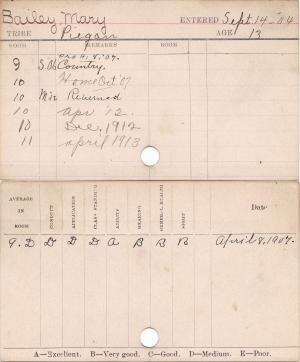 Bailey, Mary ENTERED Sept. 14 - 04
TRIBE Piegan AGE 13
ROOM REMARKS ROOM
9 Country.
10 Home Oct '07
10 Returned
10 apr '12.
10 Dec, 1912
11 april 1913
AVERAGE IN ROOM CONDUCT APPLICATION CLASS STANDING ABILITY READING GENERAL HEALTH SPIRIT Date
9. D D D D A B B B April 8, 1907.
A—Excellent. B—Very good. C—Good. D—Medium. E—Poor.